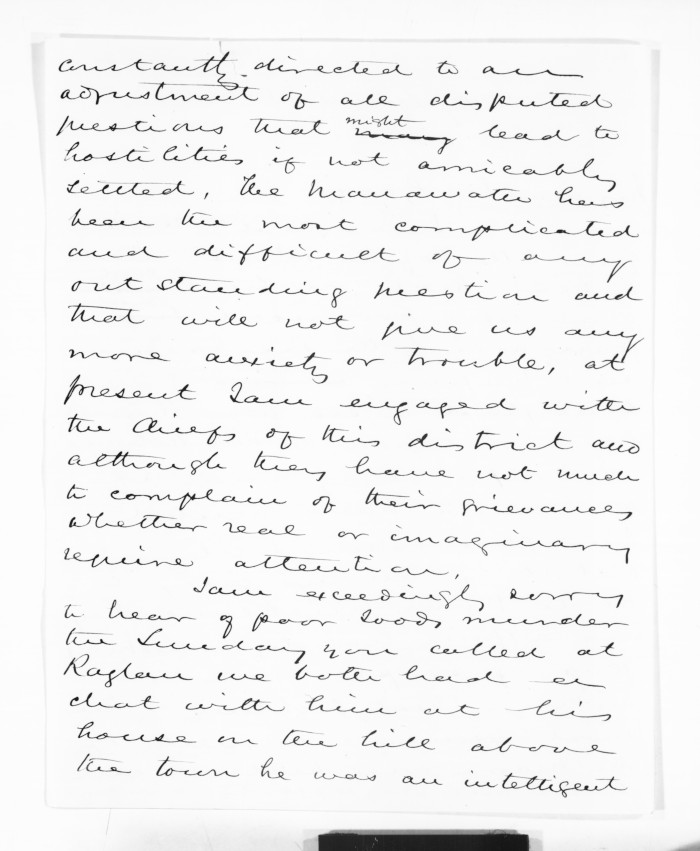 constantly directed to an
adjustment of all disputed
questions that might many lead to
hostilities if not amicably
settled, the Manawatu has
been the most complicated
and difficult of any
out standing question and
that will not give us any
more anxiety or trouble, at
present I am engaged with
the Chiefs of this district and
although they have not much
to complain of their grievances
whether real or imaginary
require attention,
I am exceedingly sorry
to hear of poor Todds murder
the Sunday you called at
Raglan we both had a
chat with him at his
house on the hill above
the town he was an intelligent